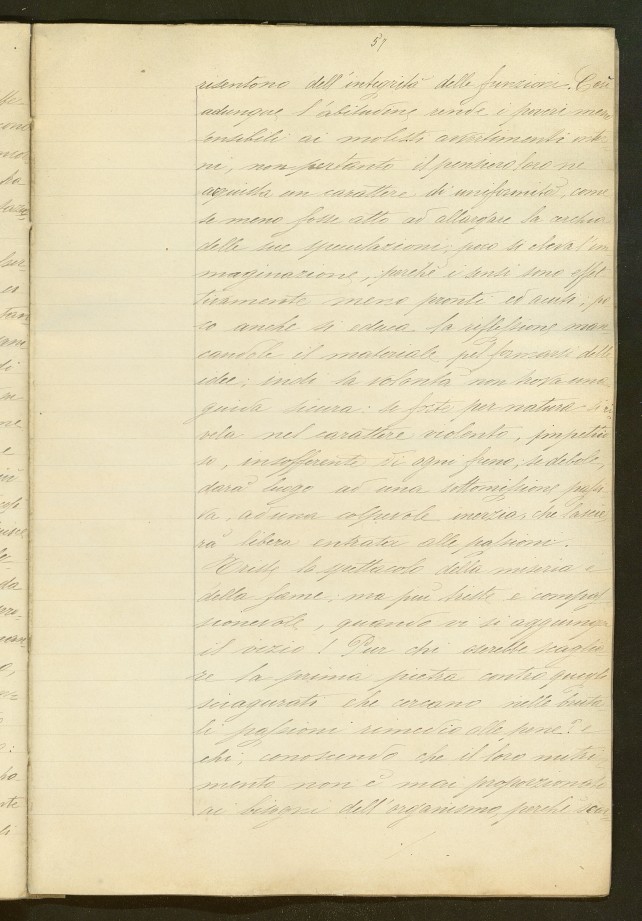 51
risentono dell'integrità delle funzioni. Così
adunque l'abitudine rende i poveri men
sensibili ai molesti
ni, non pertanto il pensiero loro ne
acquista un carattere di uniformità, come
se meno fosse atto ad allargare la cerchia
delle sue speculazioni; poco si eleva l'im-
maginazione, perchè i sensi sono effet-
tivamente meno pronti ed acuti; po
co anche si educa la riflessione man
candole il materiale pel formarsi delle
idee; indi la volontà non trova una
guida sicura: se forte per natura si ri-
vela nel carattere violento, impetuo
so, insofferente di ogni freno; se debole,
darà luogo ad una sottomissione passi-
va, ad una colpevole inerzia, che lascie
rà libera entrata alle passioni.
Triste lo spettacolo della miseria e
della fame: ma più triste e compas
sionevole, quando vi si aggiunge
il vizio! Pur chi oserebbe scaglia
re la prima pietra contro quegli
sciagurati che cercano nelle bruta
li passioni rimedio alle pene? e
chi, conoscendo che il loro nutri
mento non è mai proporzionato
ai bisogni dell'organismo, perchè scar-